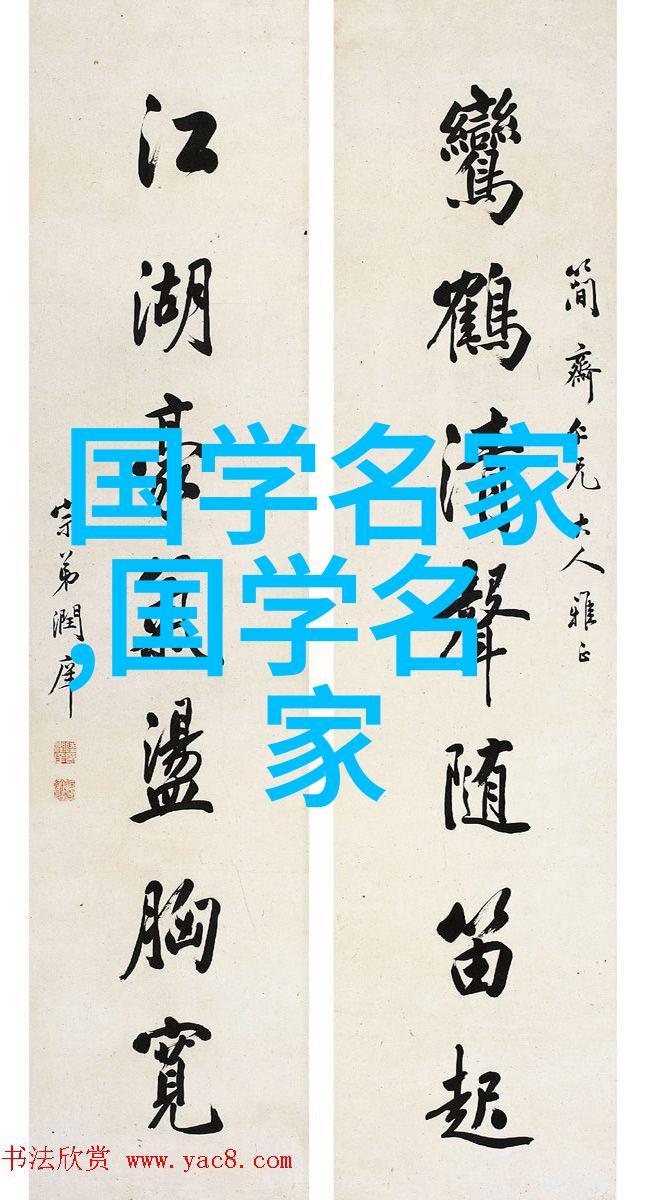 簡齋仁兄大人雅正
鸞鶴清聲随笛起
江湖豪氣盪胸寬
宗弟潤庠
国学名家
,国学名
家
书法欣赏 www.yac8.com